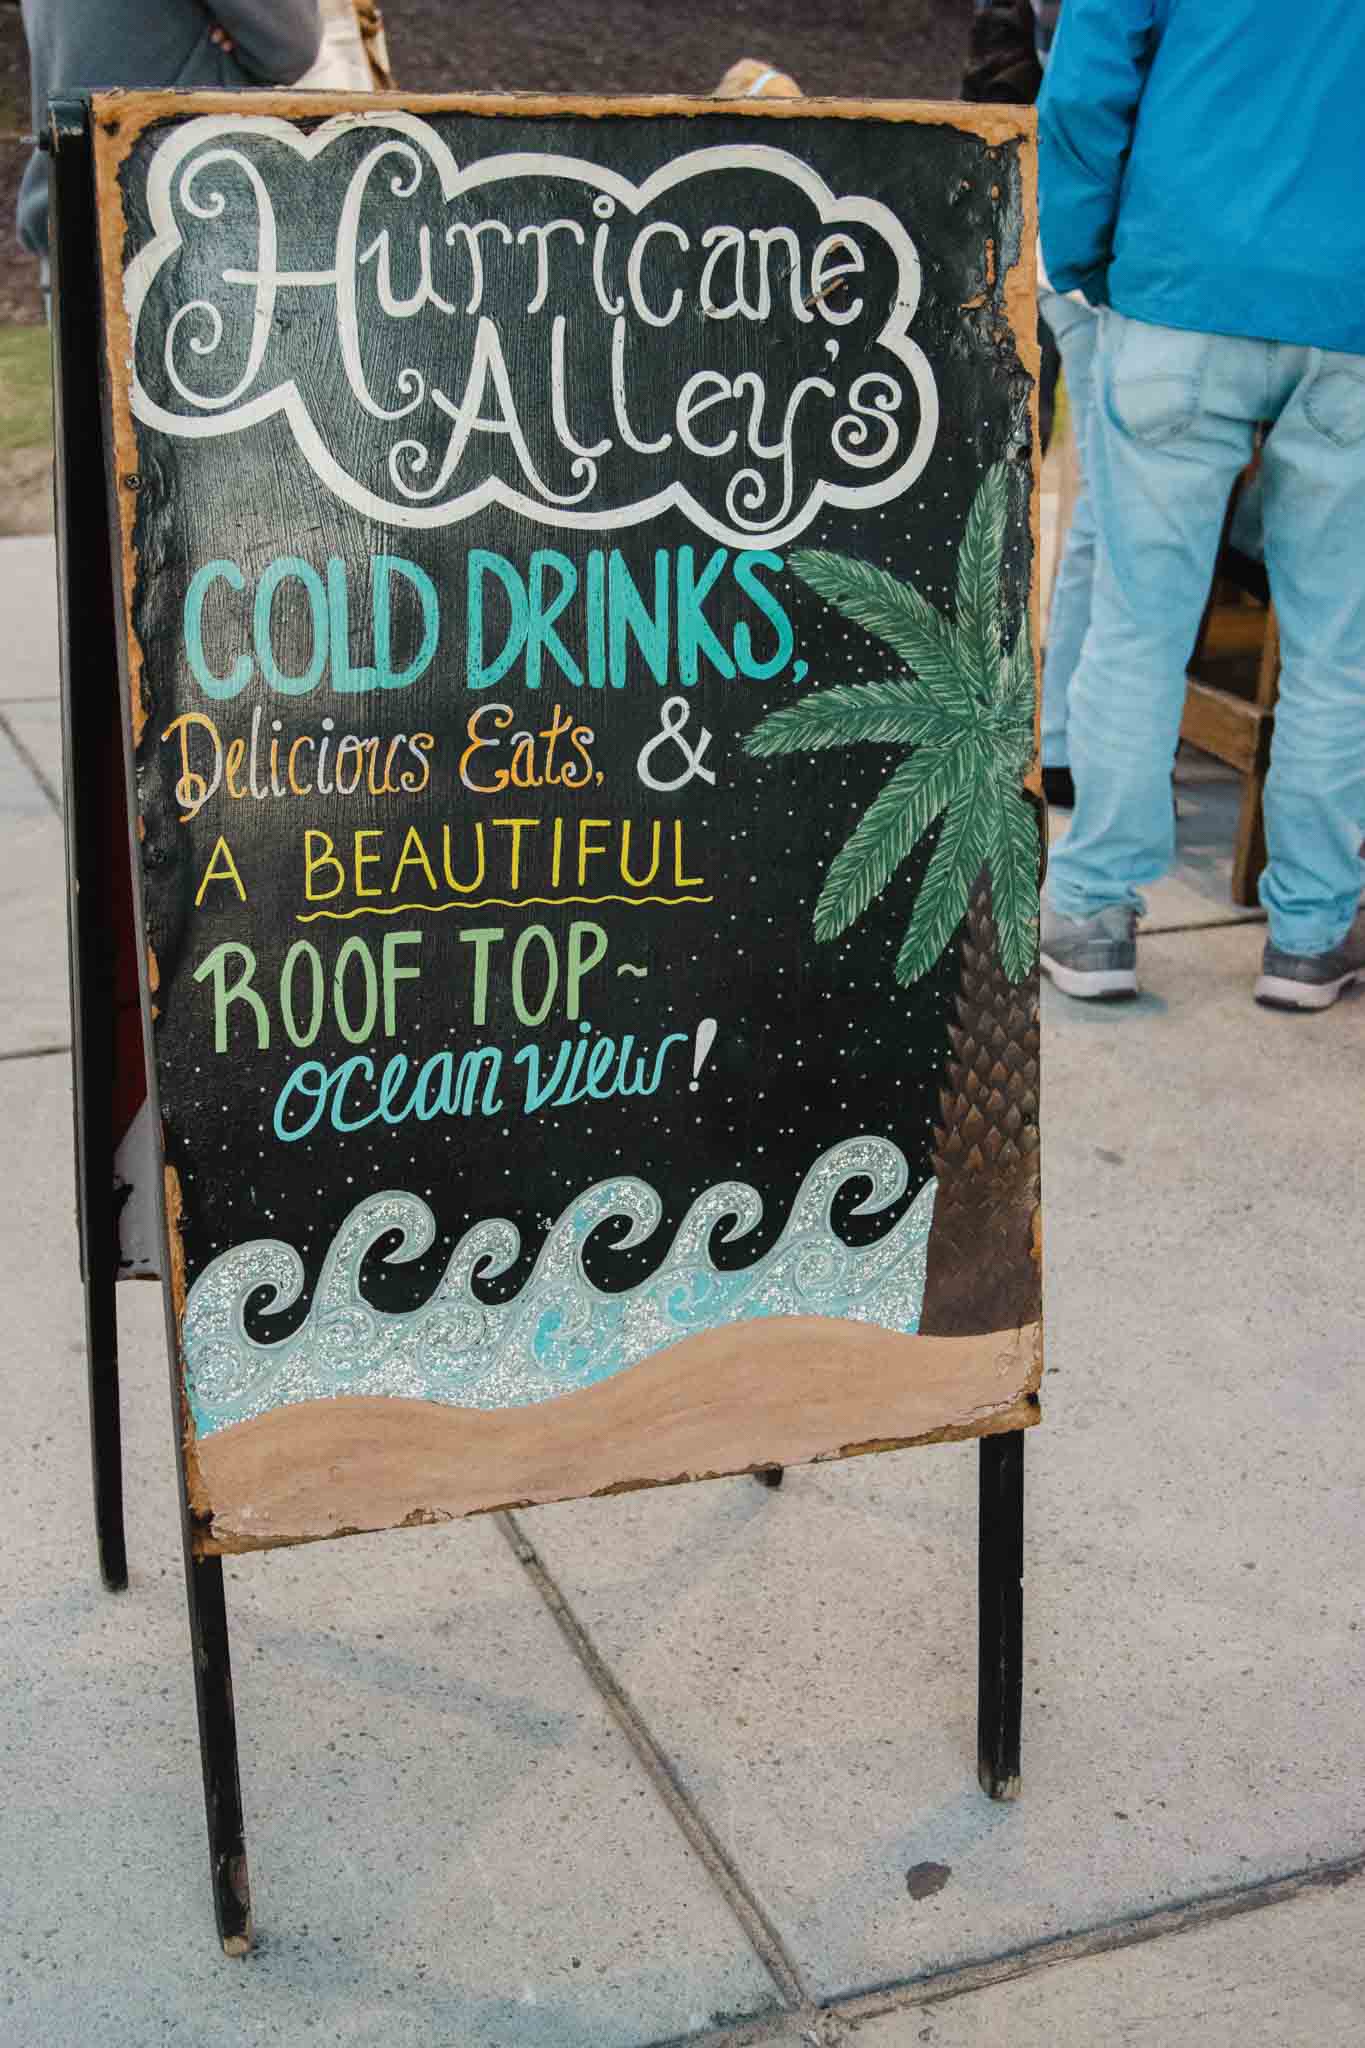 Hurricane
Alley's
COLD DRINKS,
Delicious Eats, &
A BEAUTIFUL
ROOF TOP~
ocean view!